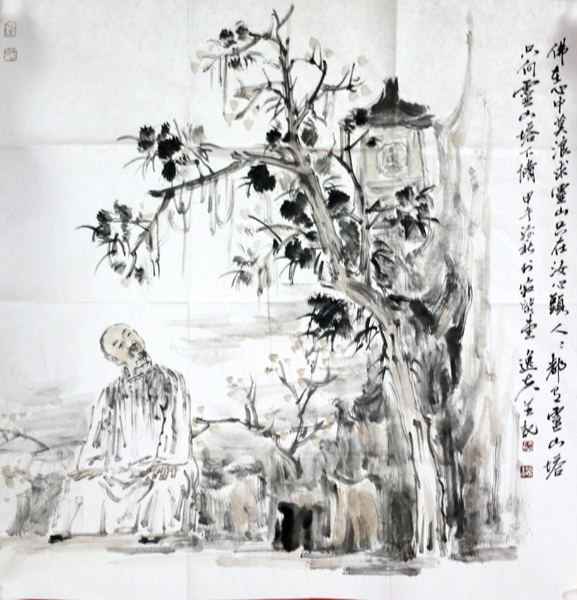 佛在心中莫浪求靈山只在汝心頭人〻都有靈山塔
只向靈山塔下修甲午
逸夫並記